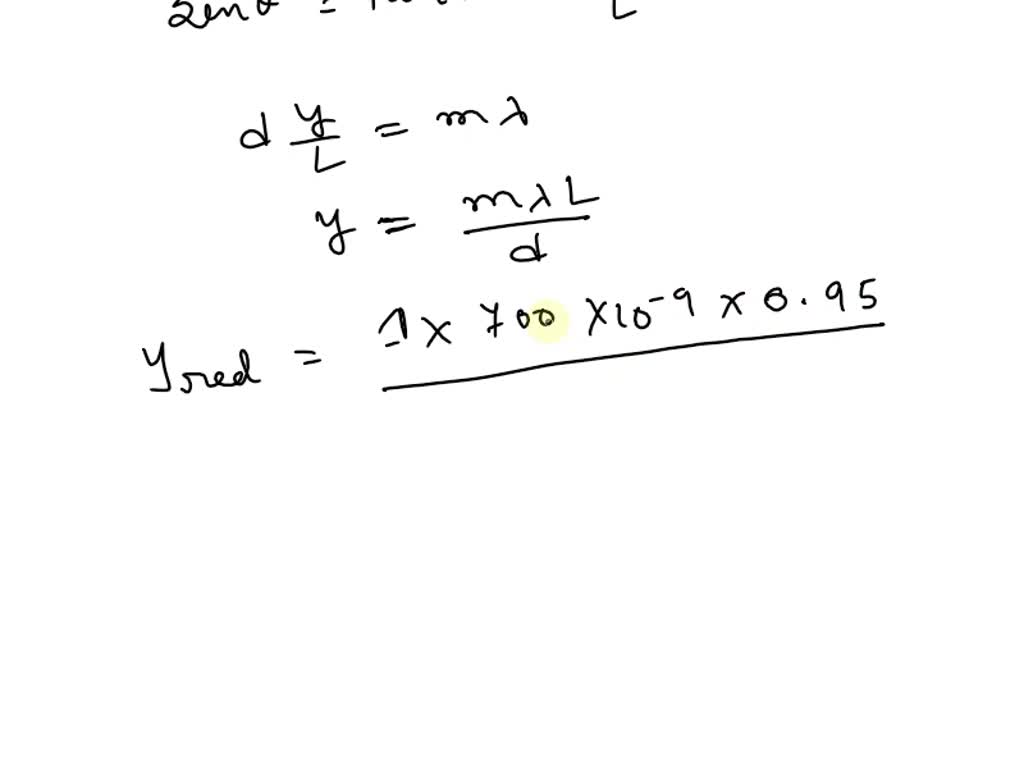 d y/L = mλ
y = mλL/d
y red = 1 × 700 × 10⁻⁹ × 0.95